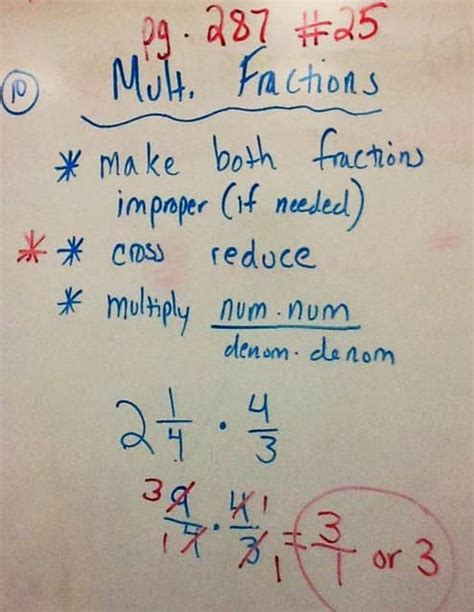 pg. 287 #25
10 Mult. Fractions
* make both fractions
improper (if needed)
* * cross reduce
* multiply num · num
denom · denom
2 1/4 · 4/3
3 9/4 1 · 4/3 1 1 = 3/1 or 3